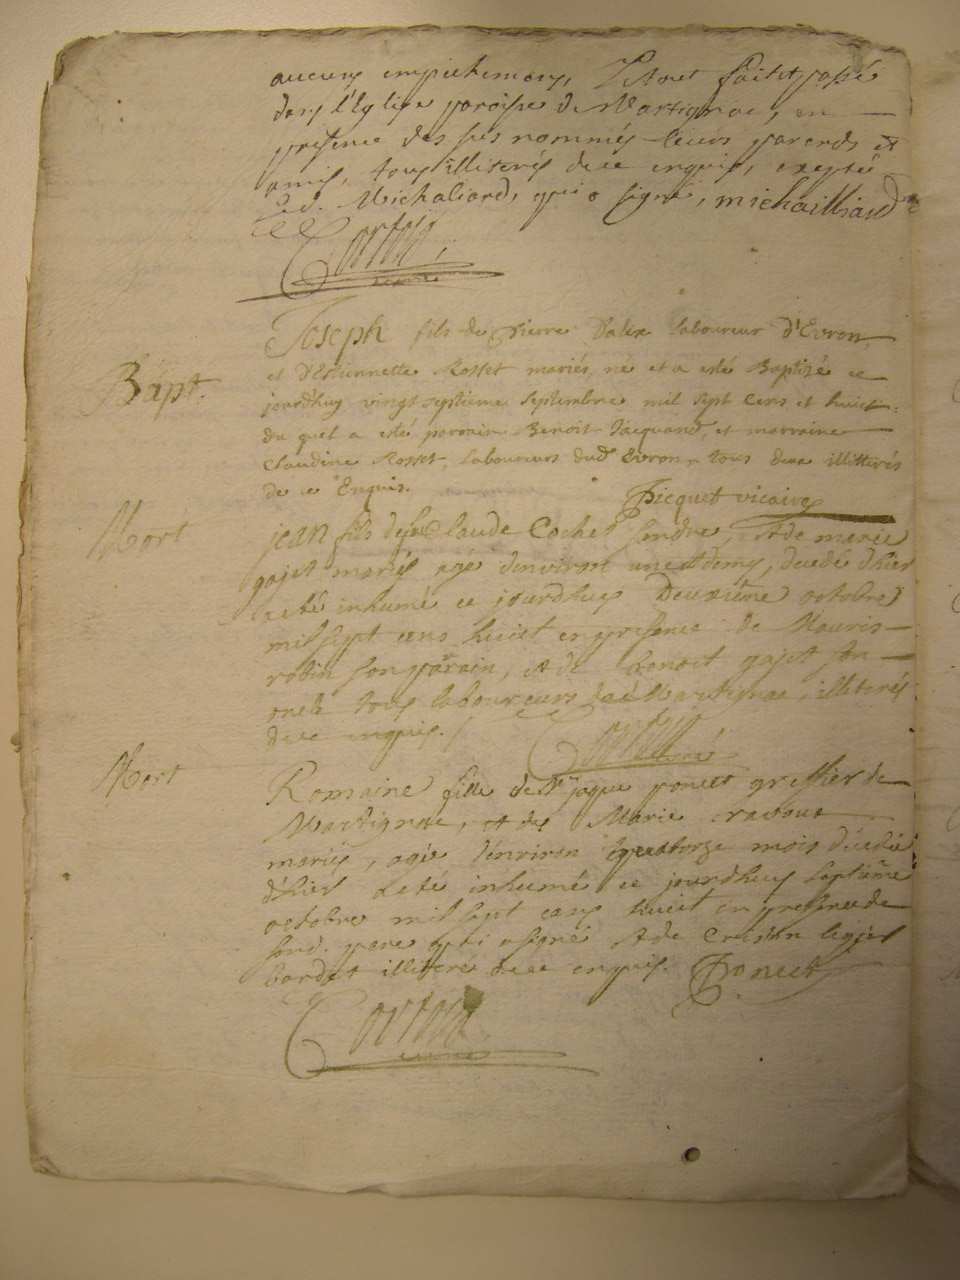 aucuns empechemens, et fait et passé
dans l'Eglise paroisse de Martignac, en
presence des sus nommés leurs parends et
amis, tous illiterés de ce enquis, excepté
led. Michaliard, qui a signé, michailliard
curé
Joseph fils de Pierre Dalex laboureur d'Evron,
Bapt.
et d'Estiennette Rosset mariés, né et a esté Baptizé ce
jourdhuy vingt septieme septembre mil sept cens et huict.
du quel a esté parrain Benoit Jacquand, et marraine
Claudine Rosset, laboureurs dud Evron, tous deux illitterés
de ce Enquis.
Picquet vicaire
Mort
jean fils de feu Claude Cochet, et de marie
gajet mariés agé d'environ une et demy, decedé d'hier
a eté inhumé ce jourdhuy Deuxiéme octobre
mil sept cens huict en presence de Mauris
robin son parain, et de benoit gajet son
oncle tous laboureurs dud Martignac, illiterés
de ce enquis.
curé
Mort
Romaine fille de Sr jaque poncet greffier de
Martignac, et de Marie ravoux
mariés, agée d'environ quatorze mois décedée
d'hier a eté inhumé ce jourdhuy septiéme
octobre mil sept cens huict en presence de
sond. pere qui a signé et de
bardet illiteré de ce enquis. Poncet
curé